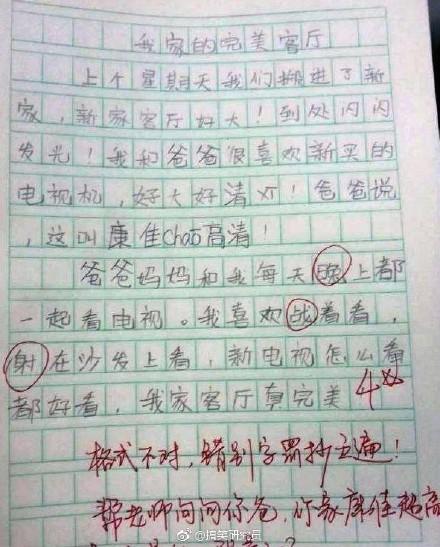 我家的完美客厅
上个星期天我们搬进了新
家，新家客厅好大！到处闪闪
发光！我和爸爸很喜欢新买的
电视机，好大好清义！爸爸说
，这叫康佳chao高清！
爸爸妈妈和我每天晚上都
一起看电视。我喜欢战着看，
射在沙发上看，新电视怎么看
都好看，我家客厅真完美
4分
格式不对，错别字罚抄五遍！
帮老师问问你爸，你家康佳超高
@搞笑研究员